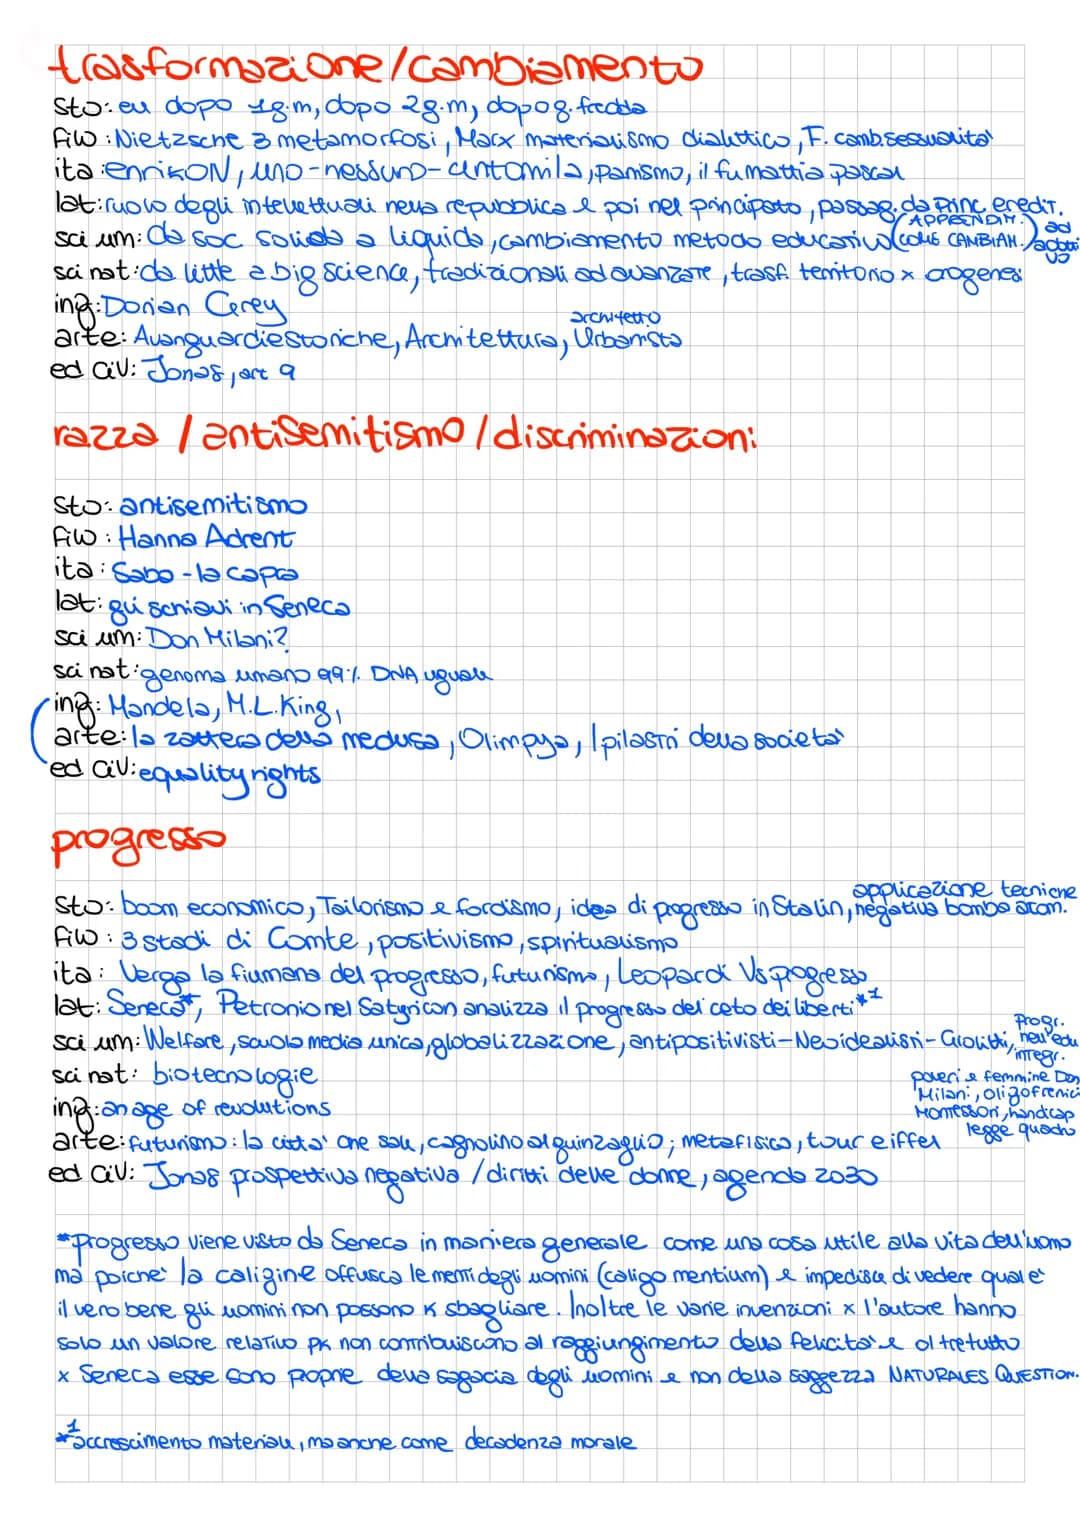 trasformazione/cambiamento
sto: eu dopo 1g.m, dopo 2g.m, dopo g. fredda
filo: Nietzsche 3 metamorfosi, Marx materialismo dialettico, F. camb. sessualità
ita: enrikON, uno-nessuno-centomila, panismo, il fu mattia pascal
lat: ruolo degli intellettuali nella repubblica e poi nel principato, passag. da princ eredit. ad adotti vo
sci um: da soc solida a liquida, cambiamento metodo educativo (APPRENDIM. COME CAMBIAM.)
sci nat: da little a big science, tradizionali ad avanzate, trasf. territorio x orogenesi
ing: Dorian Gerey
arte: Avanguardie storiche, Architettura, architetto Urbanista
ed civ: Jonas, art 9
razza / antisemitismo / discriminazioni
sto: antisemitismo
filo: Hanna Adrent
ita: Saba - la capra
lat: gli schiavi in Seneca
sci um: Don Milani?
sci nat: genoma umano 99% DNA uguale
ing: Mandela, M.L. King,
arte: la zattera della medusa, Olimpya, I pilastri della società
ed civ: equality rights
progresso
sto: boom economico, Tailorismo e fordismo, idea di progresso in Stalin, applicazione tecniche negativa bomba atom.
filo: 3 stadi di Comte, positivismo, spiritualismo
ita: Verga la fiumana del progresso, futurismo, Leopardi Vs progresso
lat: Seneca*, Petronio nel Satyricon analizza il progresso del ceto dei liberti*1
sci um: Welfare, scuola media unica, globalizzazione, antipositivisti-Neoidealisti-Giolitti, progr. nell'edu integr.
poveri e femmine Don
Milani, oligofrenici
Montessori, handicap
legge quadro
sci nat: biotecnologie
ing: an age of revolutions
arte: futurismo: la città che sale, cagnolino al guinzaglio; metafisica, tour eiffel
ed civ: Jonas prospettiva negativa / diritti delle donne, agenda 2030
*Progresso viene visto da Seneca in maniera generale come una cosa utile alla vita dell'uomo
ma poiché la caligine offusca le menti degli uomini (caligo mentium) e impedisce di vedere qual è
il vero bene gli uomini non possono k sbagliare. Inoltre le varie invenzioni x l'autore hanno
solo un valore relativo pk non contribuiscono al raggiungimento della felicità e oltretutto
x Seneca esse sono proprie della sagacia degli uomini e non della saggezza NATURALES QUESTION.
*1 accrescimento materiale, ma anche come decadenza morale